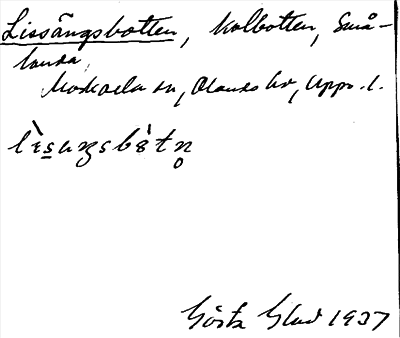 Lissängsbotten, kolbotten, Små-
landa,
Morkarla sn, Olands hd, Upps. l.
lìsaŋsbòtn̥
Gösta Glad 1937